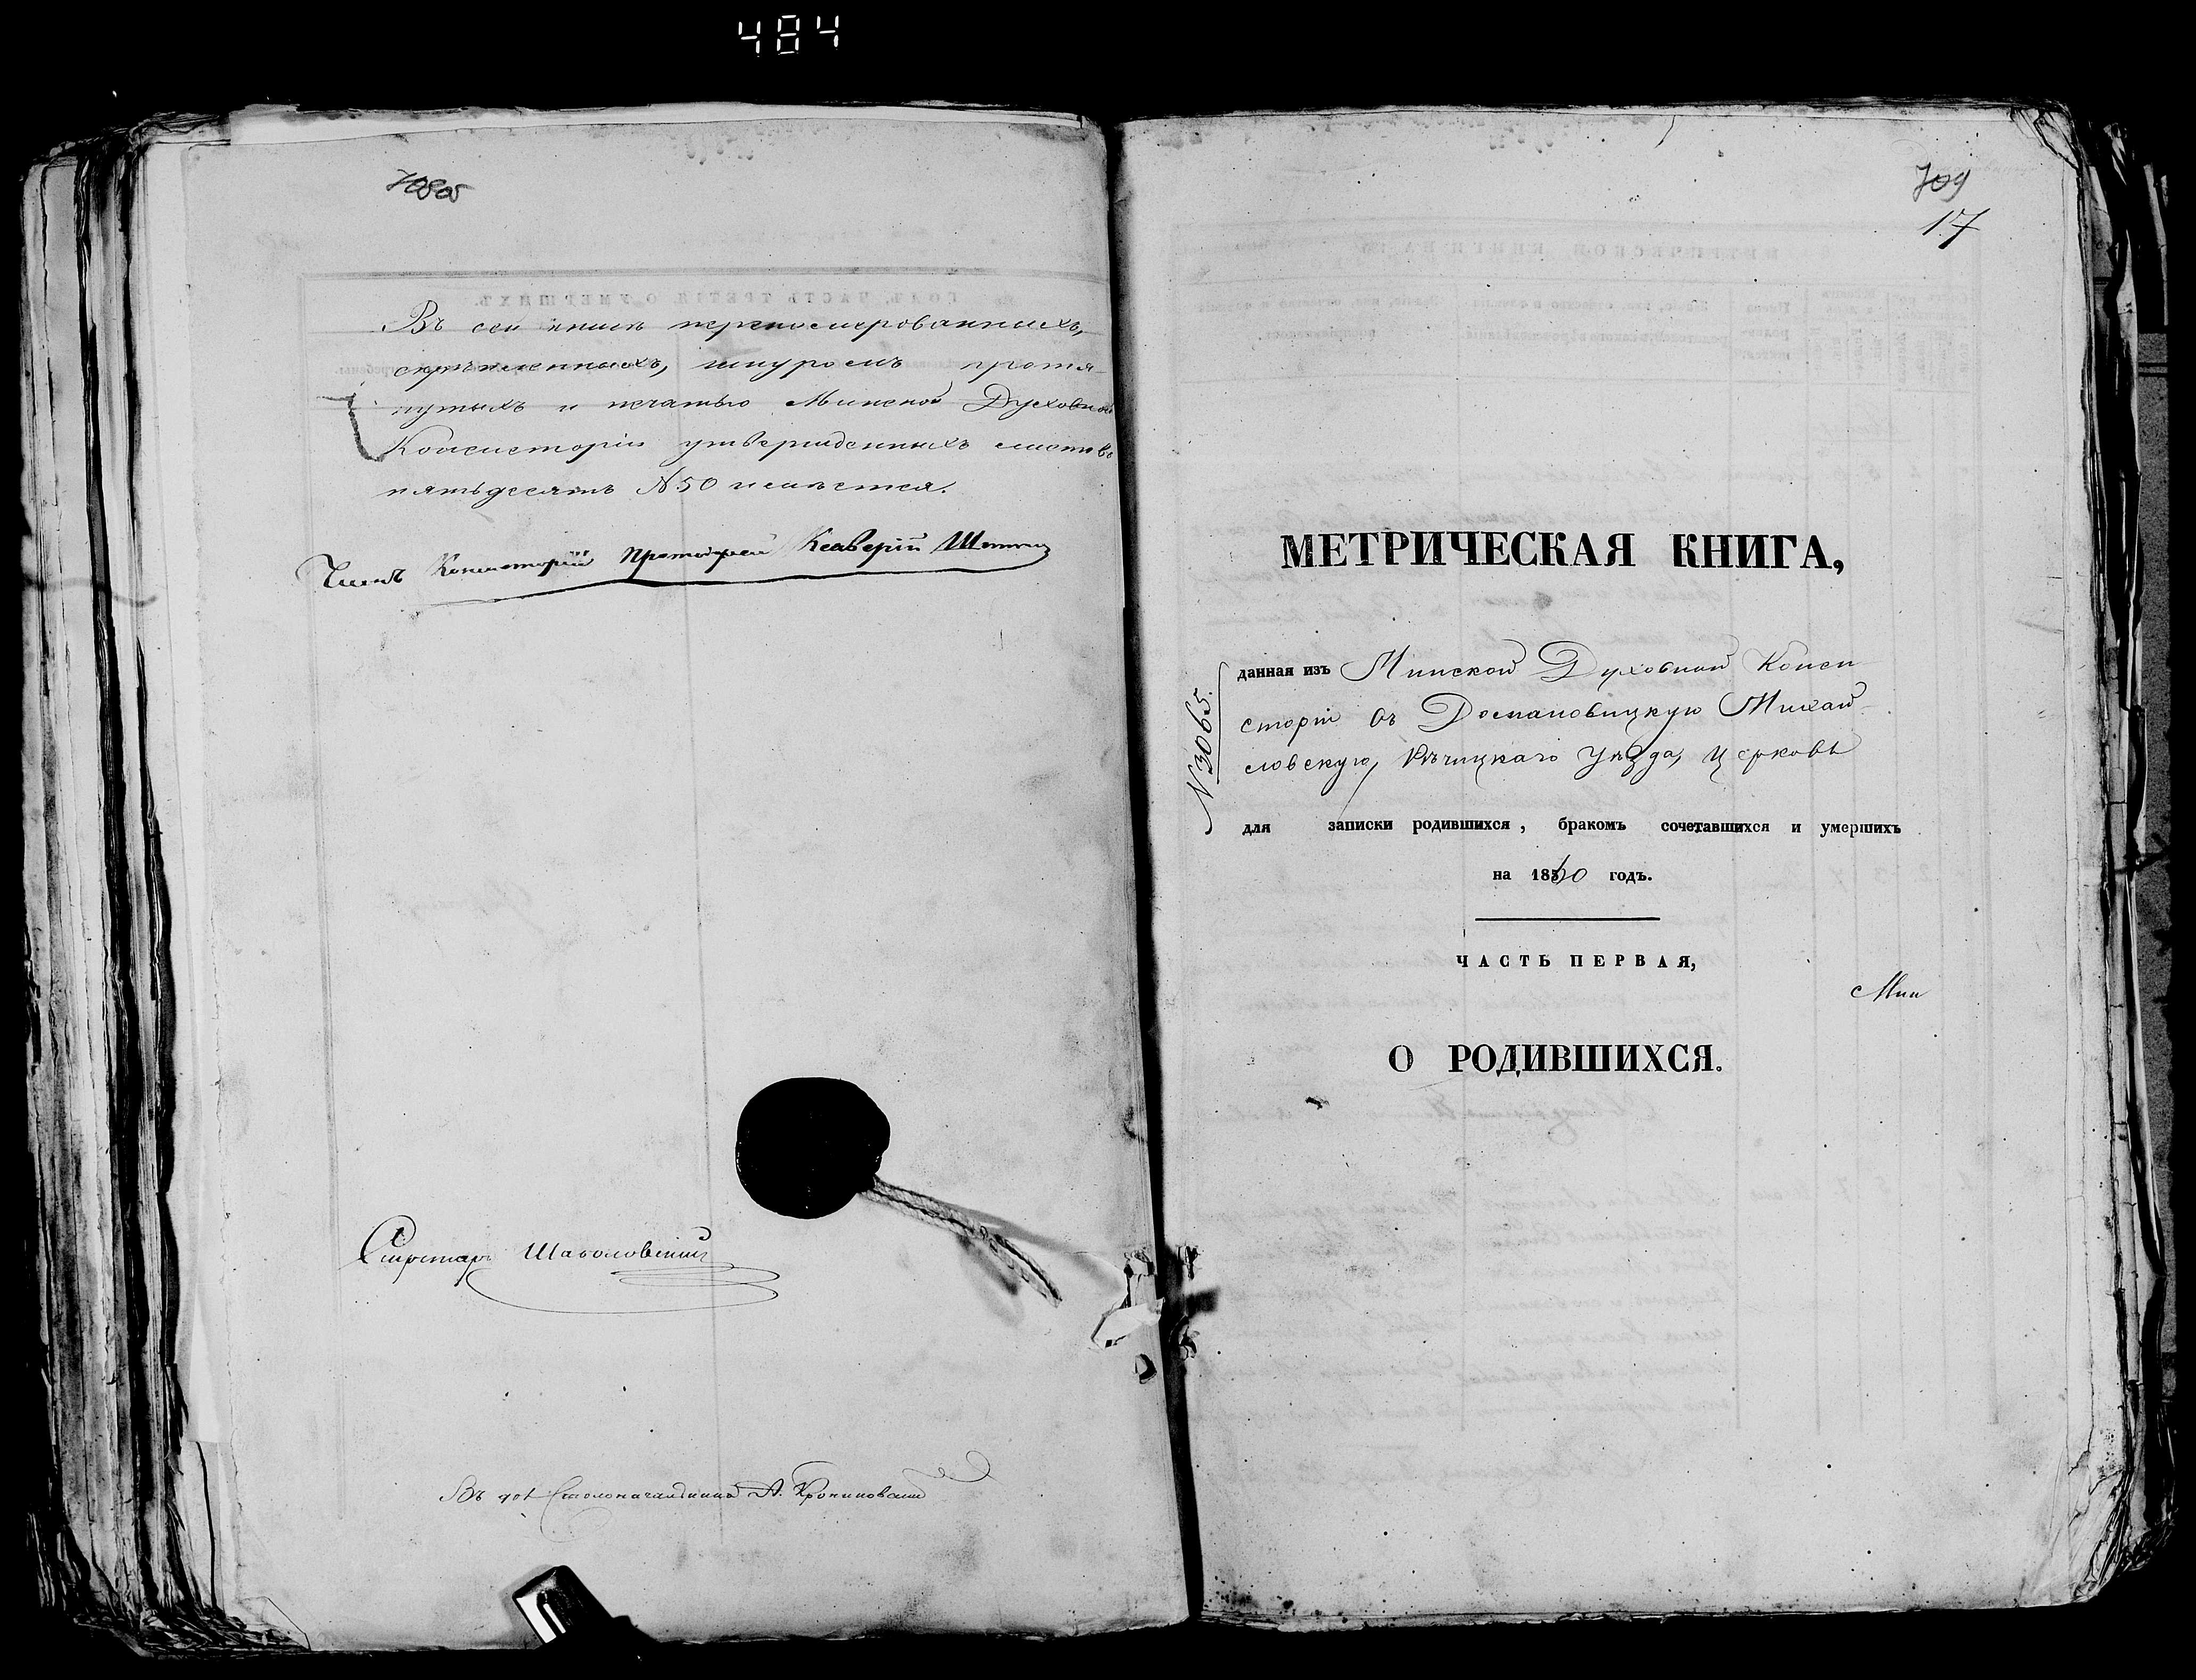 484
708об
Въ сей книгѣ перенумерованныхъ,
скрѣпленныхъ, шнуромъ протя
нутыхъ и печатью Минской Духовной
Консисторіи утвержденныхъ листовъ
пятьдесятъ №50 имѣется.
Членъ Консисторіи Протоіерей Ксаверій
Секретарь Шаболовскій
Въ дол Столоначальника А.
709
17
МЕТРИЧЕСКАЯ КНИГА,
данная изъ Минской Духовной Конси
сторіи въ Домановицкую Михай
ловскую, Рѣчицкаго уѣзда, церковь
№3065.
для записки родившихся, бракомъ сочетавшихся и умершихъ
на 1860 годъ.
ЧАСТЬ ПЕРВАЯ,
Мин
О РОДИВШИХСЯ.